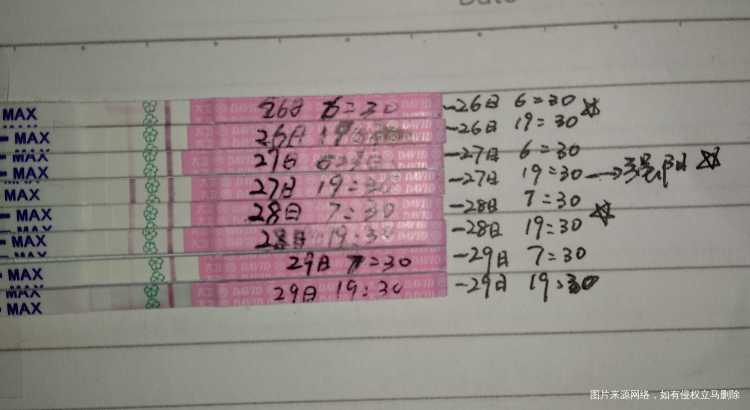 Date
MAX 26日 6=30 -26日 6=30 ☆
26日 19 -26日 19=30
MAX 27日 -27日 6=30
MAX 27日 19:30 -27日 19=30 →强阳 ☆
MAX 28日 7=30 -28日 7=30 ☆
MAX 28日 19:30 -28日 19:30
MAX 29日 7=30 -29日 7=30
MAX 29日 19:30 -29日 19:30
MAX
大卫 DAVID
图片来源网络,如有侵权立马删除